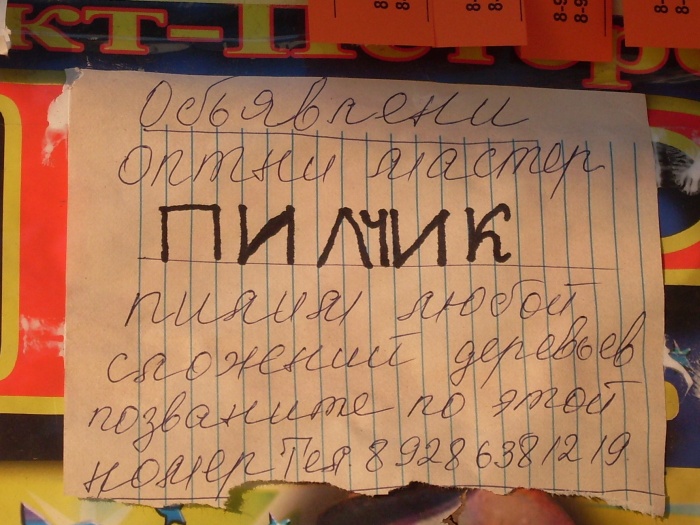 кт-Петер
8-9
8-9
Обьявлени
оптни мастер
ПИЛЧИК
пилим любой
сложений деревьев
позваните по этой
номер Тел. 89286381219